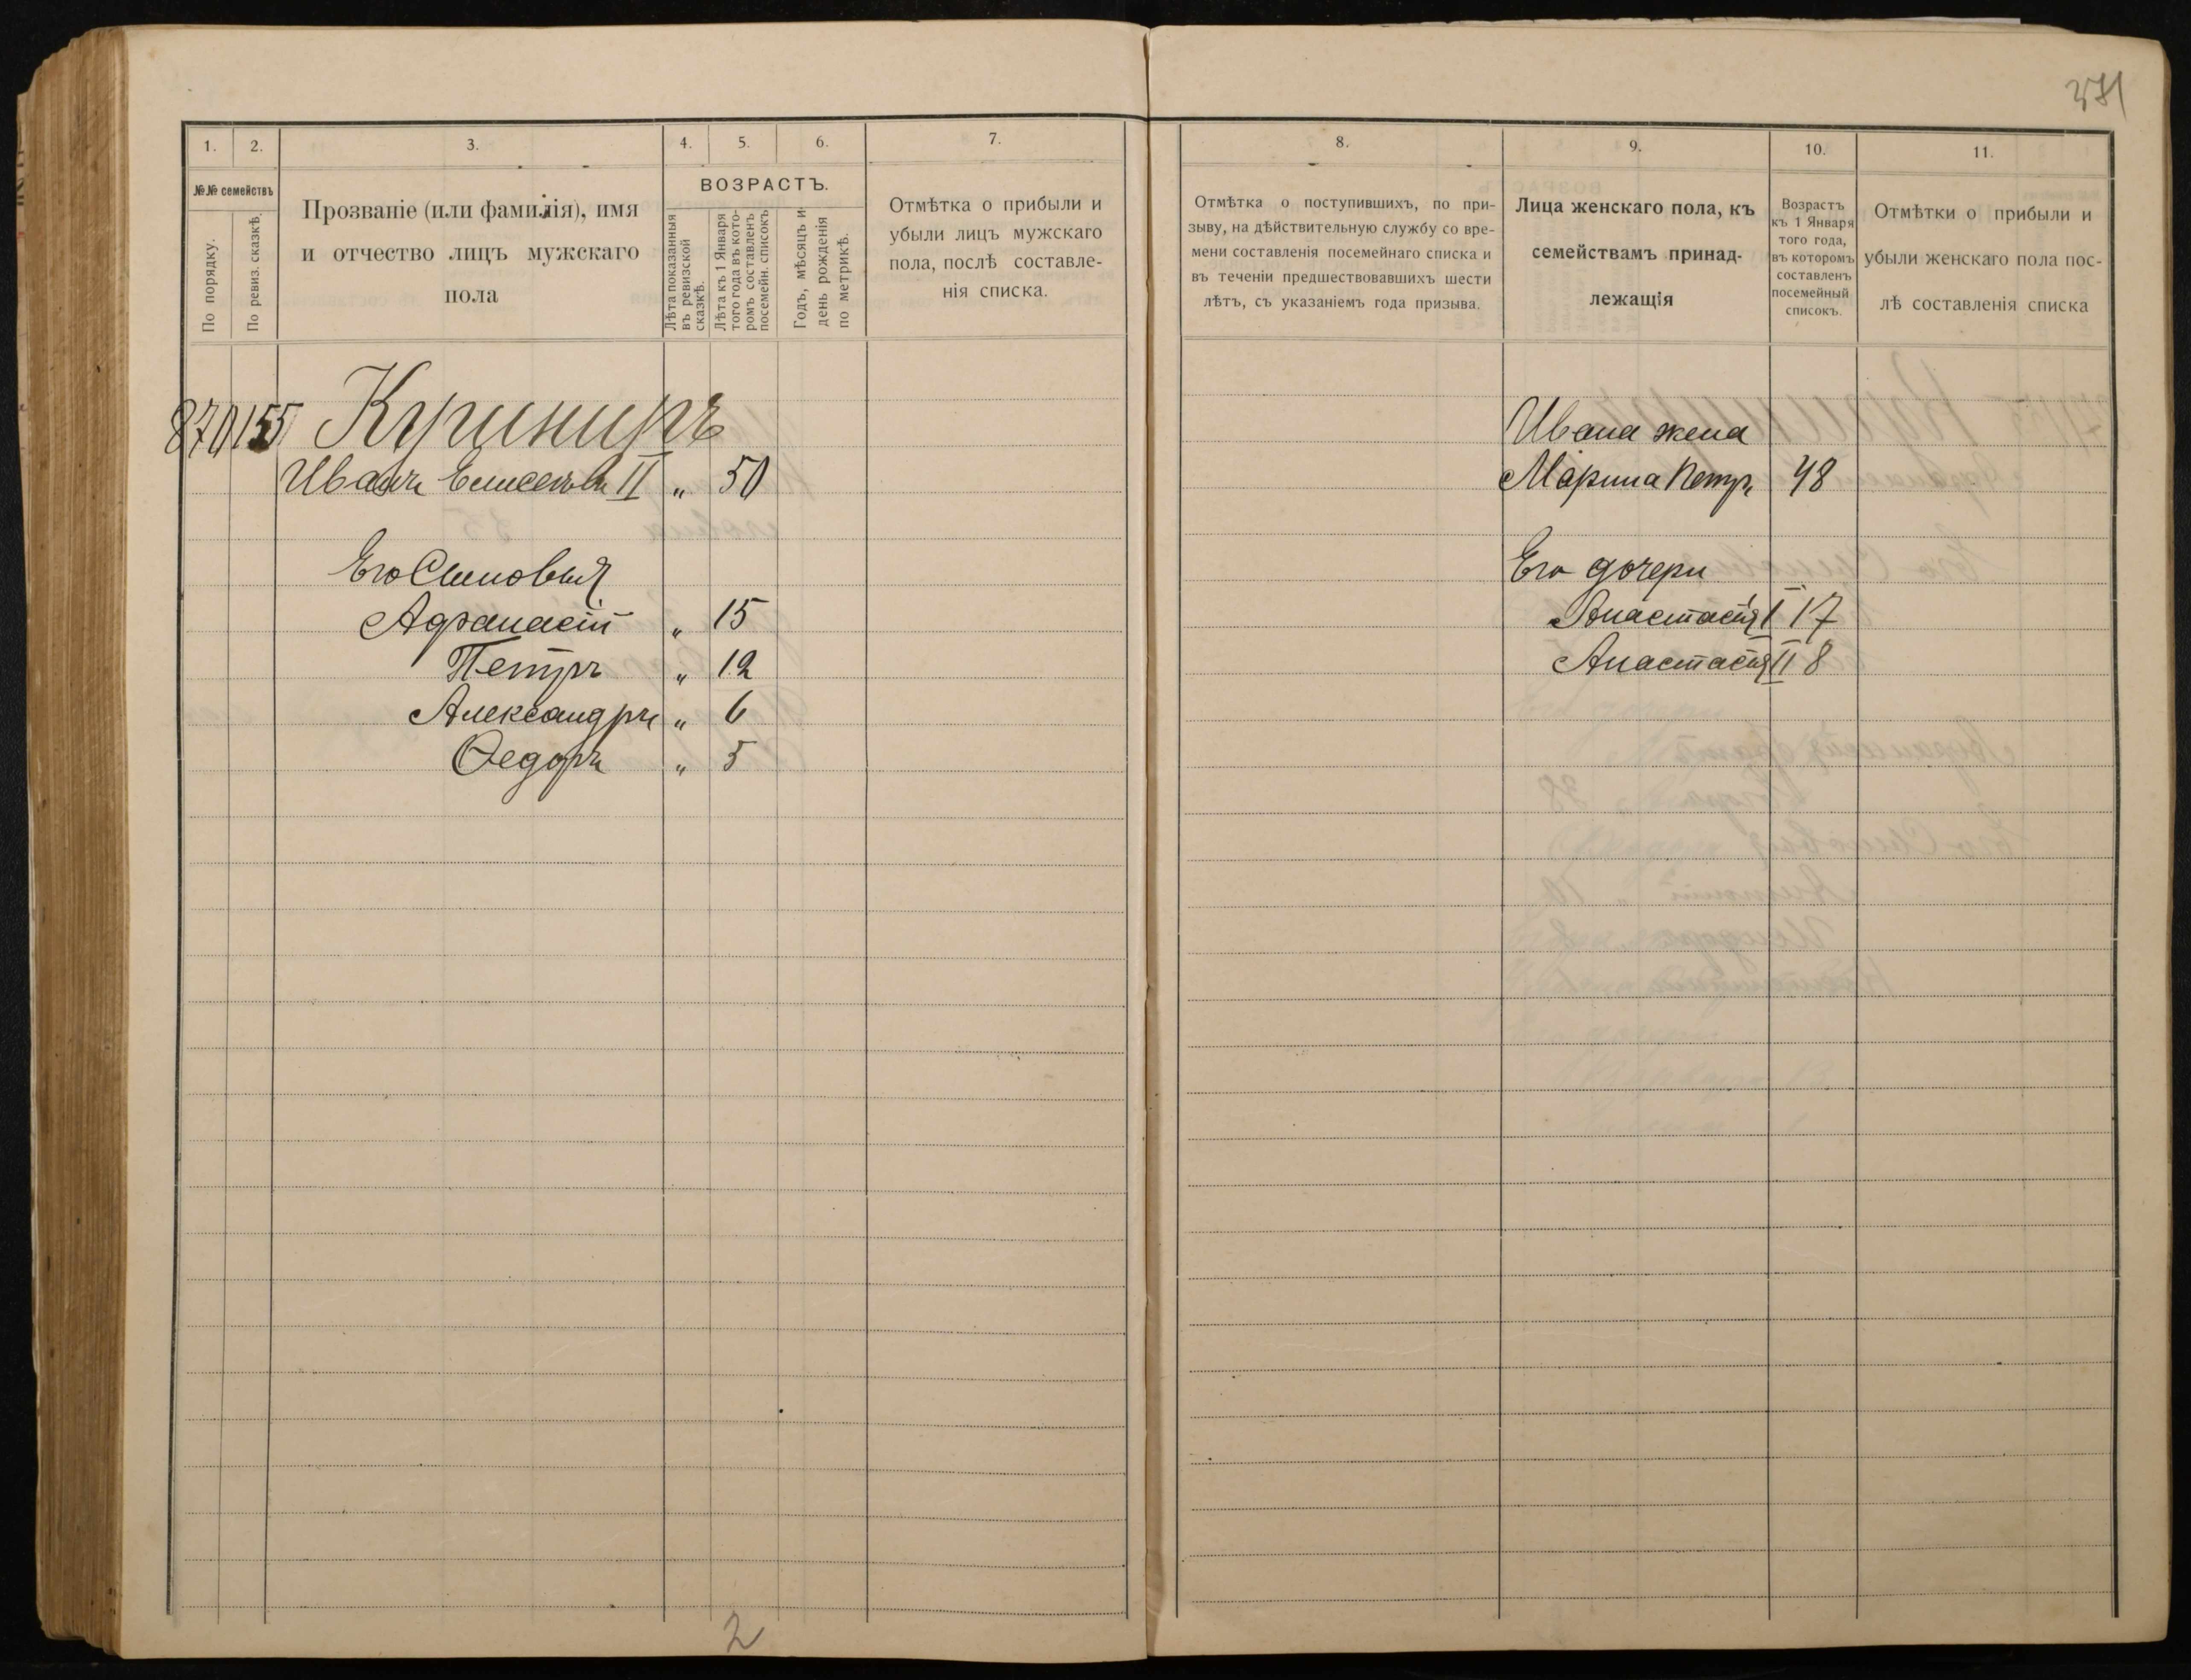 371
1. 2. 3. 4. 5. 6. 7.
№№ семействъ
По порядку.
По ревиз. сказкѣ.
Прозваніе (или фамилія), имя
и отчество лицъ мужскаго
пола
ВОЗРАСТЪ.
Лѣта показанныя
въ ревизской
сказкѣ.
Лѣта къ 1 Января
того года въ кото-
ромъ составленъ
посемейн. списокъ
Годъ, мѣсяцъ и
день рожденія
по метрикѣ.
Отмѣтка о прибыли и
убыли лицъ мужскаго
пола, послѣ составле-
нія списка.
870 155 Куриниръ
Иванъ Елисеевъ II „ 50
Его Сыновья
Афанасій „ 15
Петръ „ 12
Александръ „ 6
Ѳедоръ „ 5
2
8. 9. 10. 11.
Отмѣтка о поступившихъ, по при-
зыву, на дѣйствительную службу со вре-
мени составленія посемейнаго списка и
въ теченіи предшествовавшихъ шести
лѣтъ, съ указаніемъ года призыва.
Лица женскаго пола, къ
семействамъ принад-
лежащія
Возрастъ
къ 1 Января
того года,
въ которомъ
составленъ
посемейный
списокъ.
Отмѣтки о прибыли и
убыли женскаго пола пос-
лѣ составленія списка
Ивана жена
Марина Петр. 48
Его дочери
Анастасія I 17
Анастасія II 8